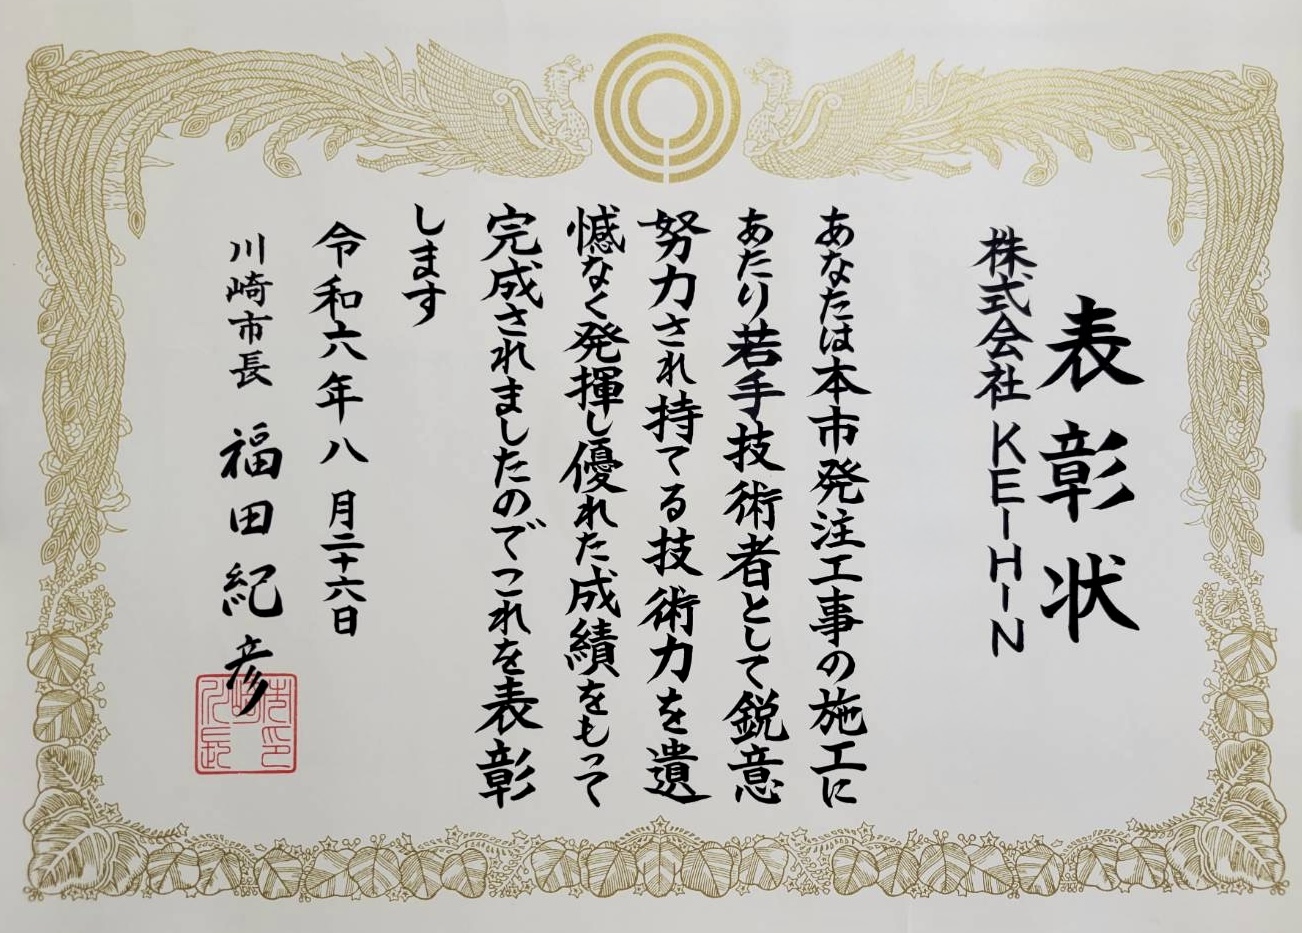 表彰状
株式会社KEIHIN
あなたは本市発注工事の施工に
あたり若手技術者として鋭意
努力され持てる技術力を遺
憾なく発揮し優れた成績をもって
完成されましたのでこれを表彰
します
令和六年八月二十六日
川崎市長 福田紀彦